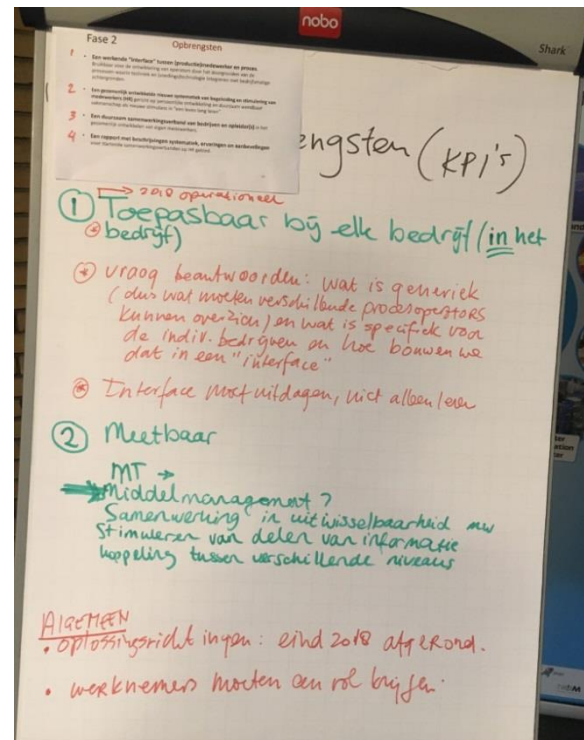 nobo
Shark
Fase 2
Opbrengsten
1 • Een werkende "interface" tussen (productie)medewerker en proces
2 • Een gezamenlijk ontwikkelde nieuwe systematiek van begeleiding en stimulering van
medewerkers (HR) gericht op persoonlijke ontwikkeling en duurzaam
3 • Een duurzaam samenwerkingsverband van bedrijven en opleider(s) in het
4 • Een rapport met beschrijvingen systematiek, ervaringen en aanbevelingen
engsten (KPI's)
2018 operationeel
① Toepasbaar bij elk bedrijf (in het
bedrijf)
vraag beantwoorden: wat is generiek
(dus wat moeten verschillende procesoperators
kunnen overzien) en wat is specifiek voor
de indiv. bedrijven en hoe bouwen we
dat in een "interface"
Interface moet uitdagen, niet alleen leren
② Meetbaar
MT →
Middelmanagement?
Samenwerking in uitwisselbaarheid mw
Stimuleren van delen van informatie
koppeling tussen verschillende niveaus
ALGEMEEN
• oplossingsrichtingen: eind 2018 afgerond.
• werknemers moeten een rol krijgen.